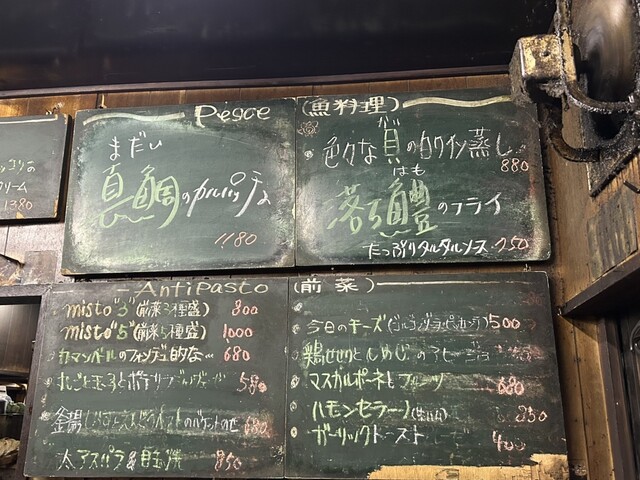 クリーム
1380
Pesce (魚料理)
まだい
真鯛のカルパッチョ
1180
色々な貝の白ワイン蒸し
880
はも
落ち鱧のフライ
たっぷりタルタルソース 750
AntiPasto (前菜)
misto"3"(前菜3種盛) 800
misto"5"(前菜5種盛) 1000
カマンベールのフォンデュ的な 680
丸ごと玉子とポテサラ 580
釜揚 のバケットのせ 680
太アスパラ&目玉焼 850
今日のチーズ 500
鶏せせりとしめじの
マスカルポーネとフルーツ 680
ハモンセラーノ(生ハム) 850
ガーリックトースト 400